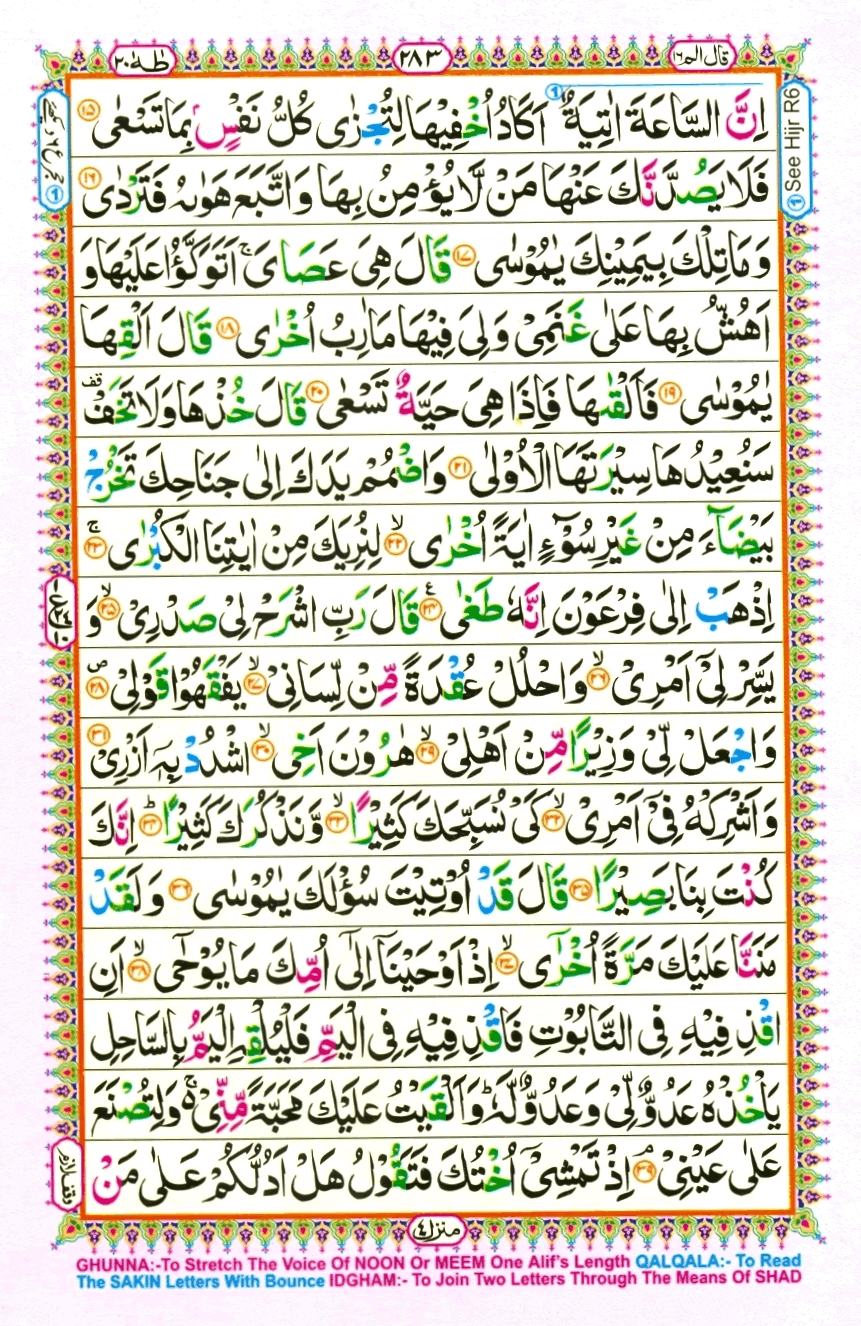 طٰهٰ ٢٠
٢٨٣
قال الم ١٦
اِنَّ السَّاعَةَ اٰتِيَةٌ اَكَادُ اُخْفِيْهَا لِتُجْزٰى كُلُّ نَفْسٍۭ بِمَا تَسْعٰى ۝١٥
فَلَا يَصُدَّنَّكَ عَنْهَا مَنْ لَّا يُؤْمِنُ بِهَا وَاتَّبَعَ هَوٰىهُ فَتَرْدٰى ۝١٦
وَمَا تِلْكَ بِيَمِيْنِكَ يٰمُوْسٰى ۝١٧ قَالَ هِىَ عَصَاىَ ۚ اَتَوَكَّؤُا عَلَيْهَا وَ
اَهُشُّ بِهَا عَلٰى غَنَمِىْ وَلِىَ فِيْهَا مَاٰرِبُ اُخْرٰى ۝١٨ قَالَ اَلْقِهَا
يٰمُوْسٰى ۝١٩ فَاَلْقٰىهَا فَاِذَا هِىَ حَيَّةٌ تَسْعٰى ۝٢٠ قَالَ خُذْهَا وَلَا تَخَفْ ۥ قف
سَنُعِيْدُهَا سِيْرَتَهَا الْاُوْلٰى ۝٢١ وَاضْمُمْ يَدَكَ اِلٰى جَنَاحِكَ تَخْرُجْ
بَيْضَآءَ مِنْ غَيْرِ سُوْٓءٍ اٰيَةً اُخْرٰى ۙ۝٢٢ لِنُرِيَكَ مِنْ اٰيٰتِنَا الْكُبْرٰى ۚ۝٢٣
اِذْهَبْ اِلٰى فِرْعَوْنَ اِنَّهٗ طَغٰى ۝٢٤ ع قَالَ رَبِّ اشْرَحْ لِىْ صَدْرِىْ ۙ۝٢٥ وَ
يَسِّرْ لِىْٓ اَمْرِىْ ۙ۝٢٦ وَاحْلُلْ عُقْدَةً مِّنْ لِّسَانِىْ ۙ۝٢٧ يَفْقَهُوْا قَوْلِىْ ۝٢٨ ص
وَاجْعَلْ لِّىْ وَزِيْرًا مِّنْ اَهْلِىْ ۙ۝٢٩ هٰرُوْنَ اَخِى ۙ۝٣٠ اشْدُدْ بِهٖٓ اَزْرِىْ ۙ۝٣١
وَاَشْرِكْهُ فِىْٓ اَمْرِىْ ۙ۝٣٢ كَىْ نُسَبِّحَكَ كَثِيْرًا ۙ۝٣٣ وَّنَذْكُرَكَ كَثِيْرًا ؕ۝٣٤ اِنَّكَ
كُنْتَ بِنَا بَصِيْرًا ۝٣٥ قَالَ قَدْ اُوْتِيْتَ سُؤْلَكَ يٰمُوْسٰى ۝٣٦ وَلَقَدْ
مَنَنَّا عَلَيْكَ مَرَّةً اُخْرٰٓى ۙ۝٣٧ اِذْ اَوْحَيْنَآ اِلٰٓى اُمِّكَ مَا يُوْحٰٓى ۙ۝٣٨ اَنِ
اقْذِفِيْهِ فِى التَّابُوْتِ فَاقْذِفِيْهِ فِى الْيَمِّ فَلْيُلْقِهِ الْيَمُّ بِالسَّاحِلِ
يَاْخُذْهُ عَدُوٌّ لِّىْ وَعَدُوٌّ لَّهٗ ؕ وَاَلْقَيْتُ عَلَيْكَ مَحَبَّةً مِّنِّىْ ۚ۬ وَلِتُصْنَعَ
عَلٰى عَيْنِىْ ۘ۝٣٩ اِذْ تَمْشِىْٓ اُخْتُكَ فَتَقُوْلُ هَلْ اَدُلُّكُمْ عَلٰى مَنْ
See Hijr R6
وقف لازم
منزل ٤
GHUNNA:-To Stretch The Voice Of NOON Or MEEM One Alif's Length QALQALA:- To Read
The SAKIN Letters With Bounce IDGHAM:- To Join Two Letters Through The Means Of SHAD